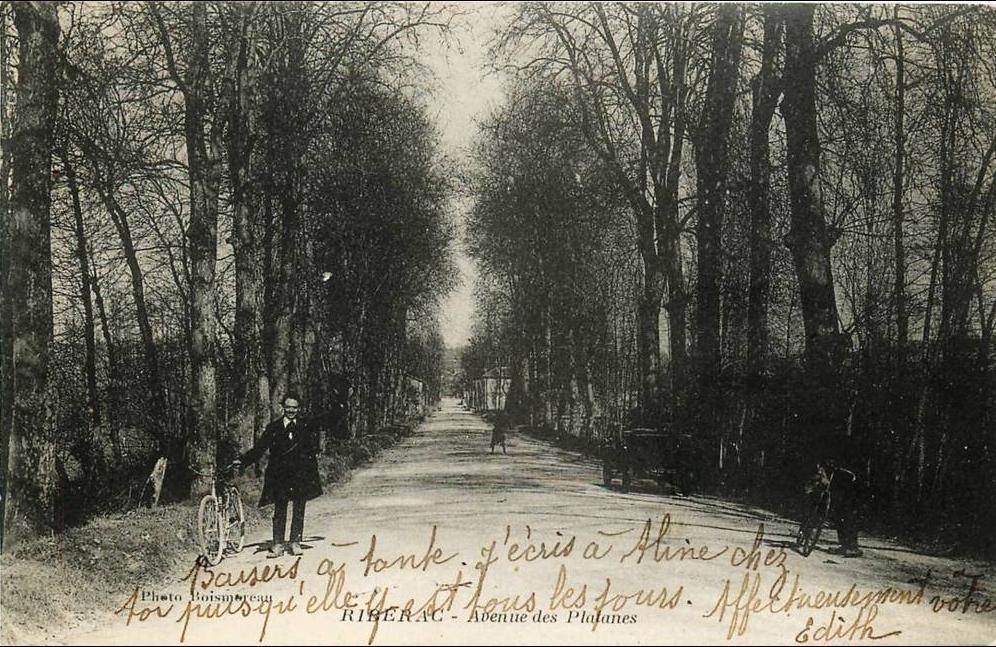 Baisers à tante. j'écris à Aline chez
toi puisqu'elle y est tous les jours. Affectueusement votre
Edith
Photo Boismoreau
RIBERAC - Avenue des Platanes